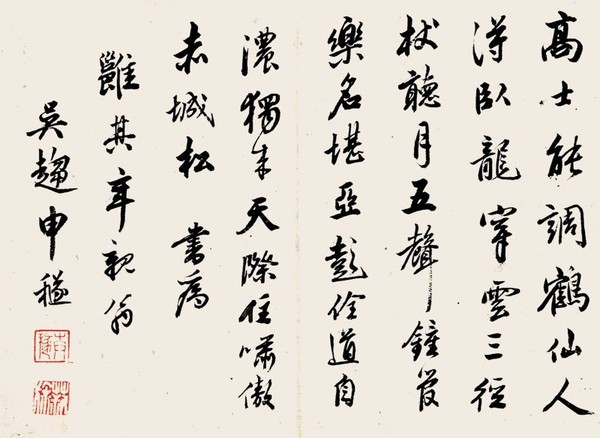 高士能調鶴仙人
得臥龍穿雲三徑
杖聽月五聲鍾管
樂名堪亞彭佺道自
濃獨來天際住嘯傲
赤城松 書為
雝其年親翁
吳趨申穟